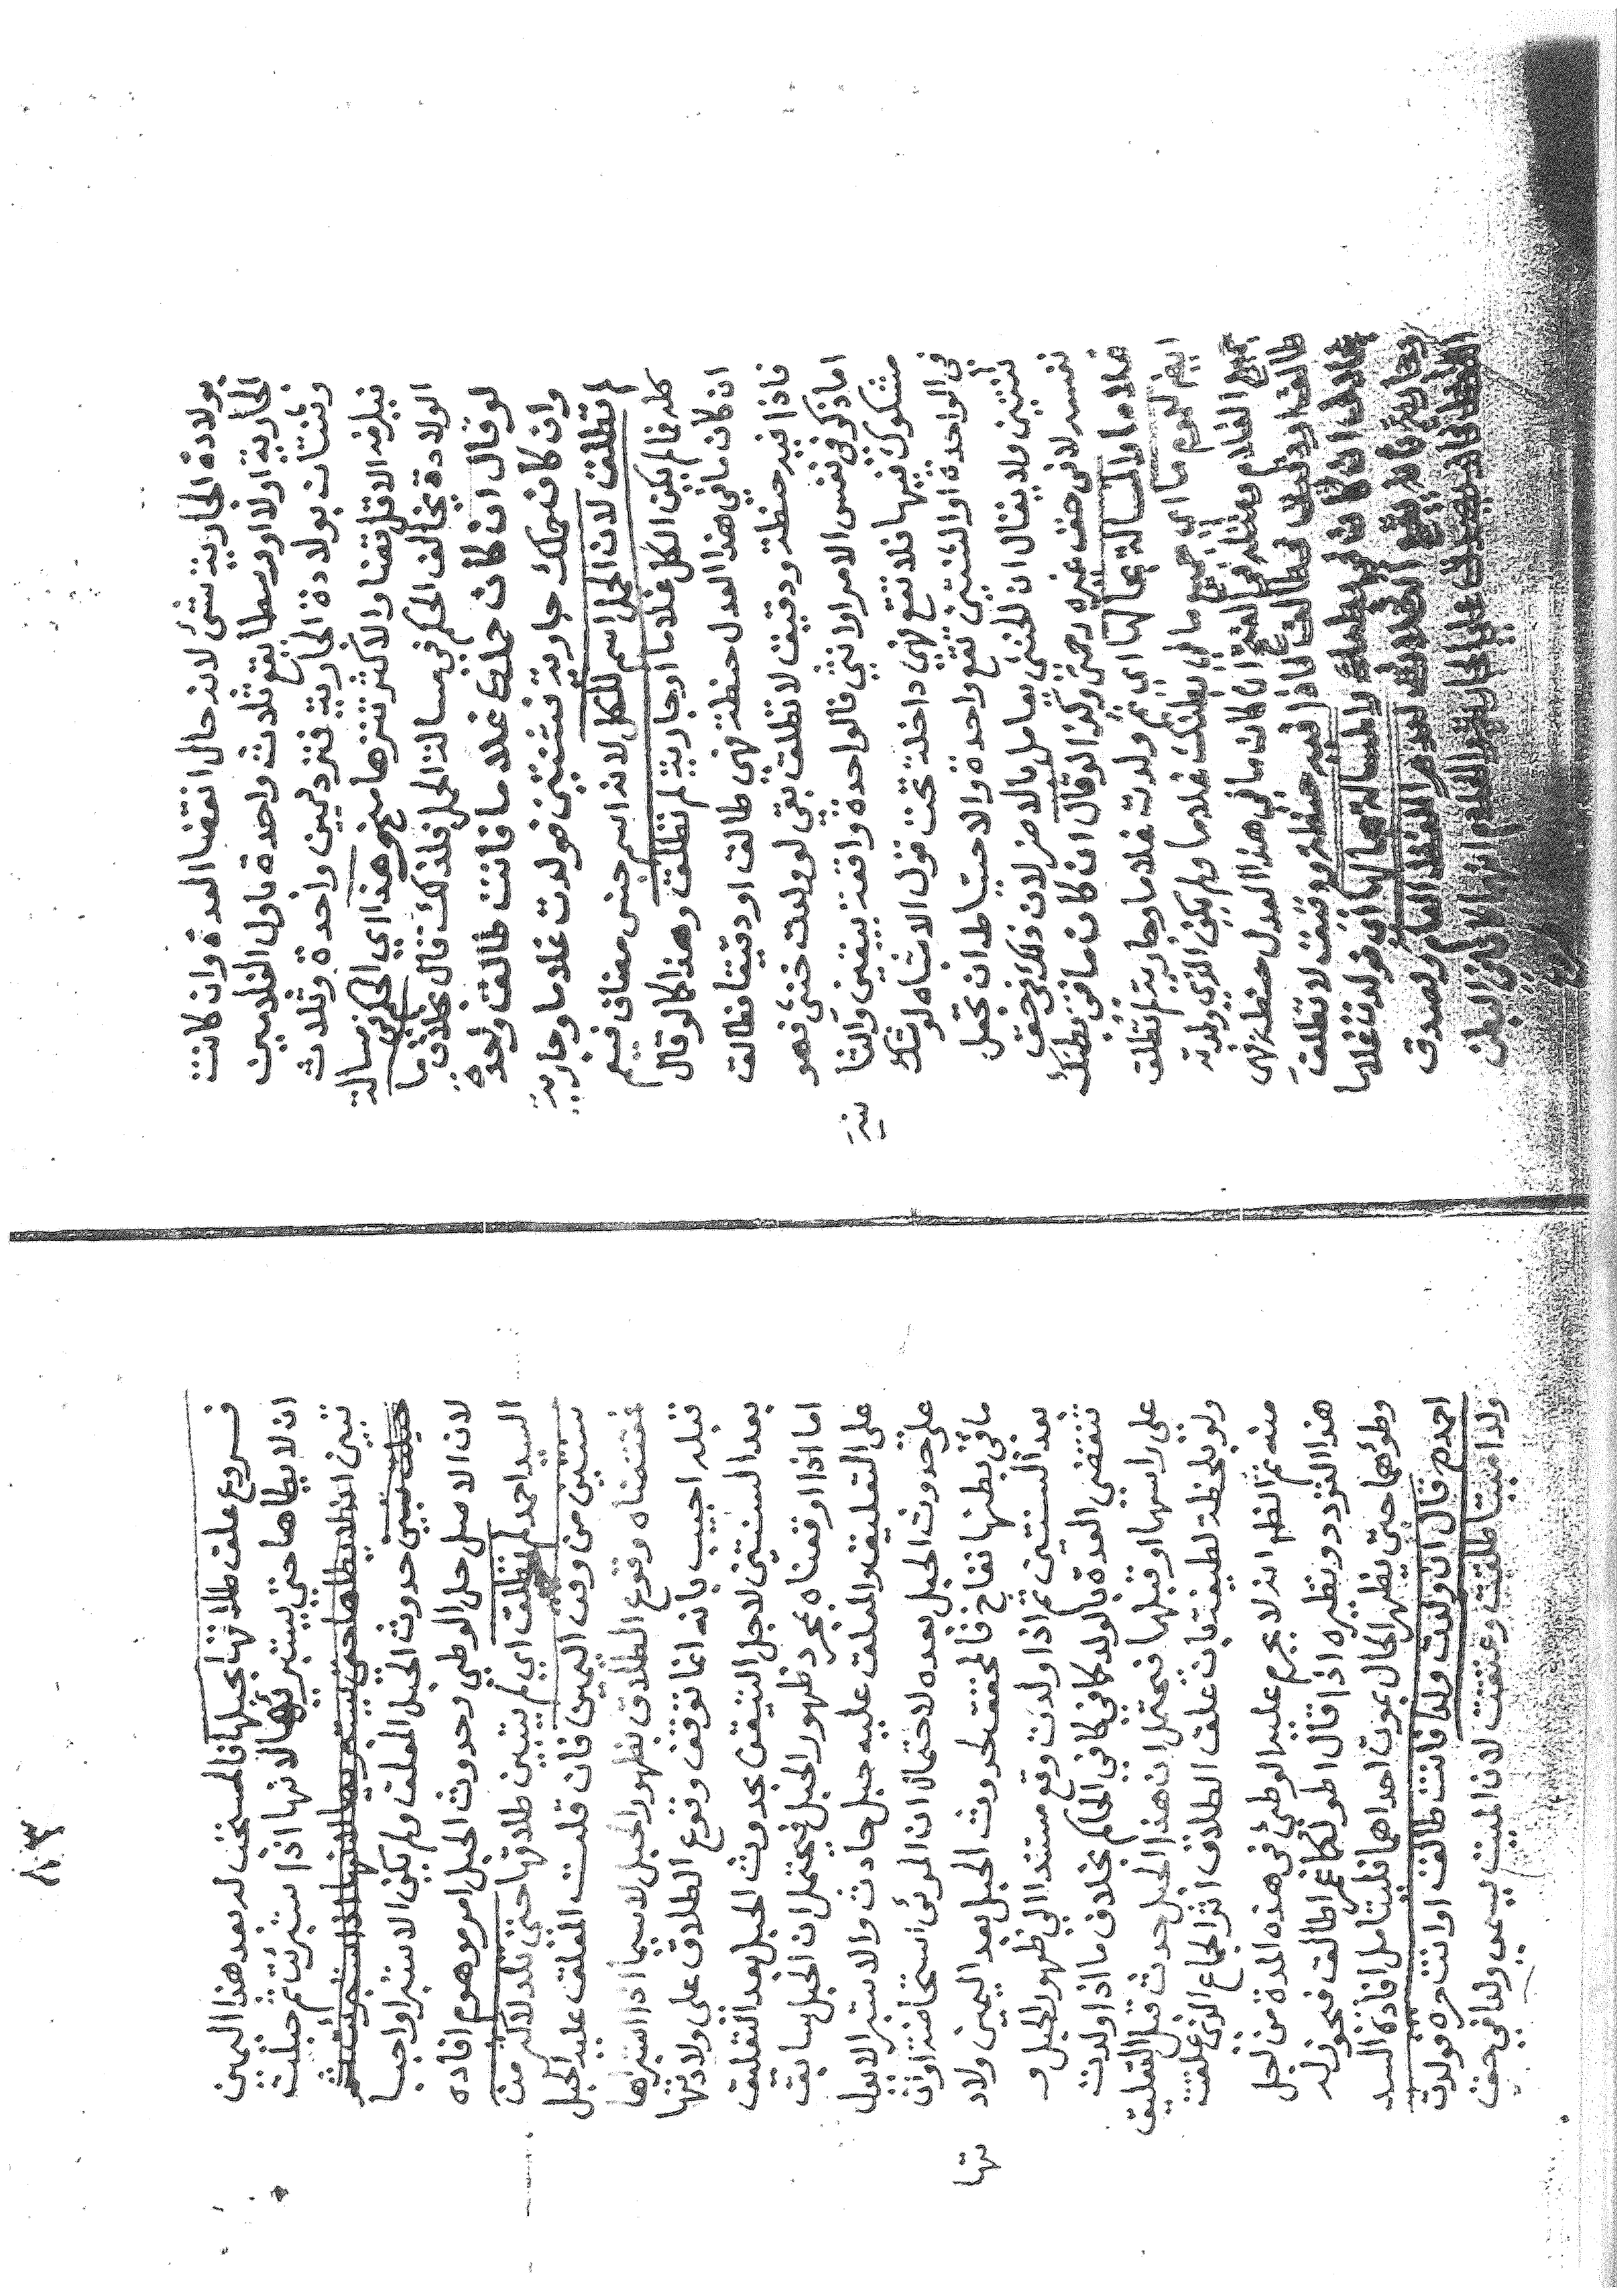 بولادة الجارية شئ لانه حال انقضا العدة وان كانت
الجارية اولا او وسطا يقع ثلاث واحدة باول الغلامين
وثنتان بولادة الجارية فتردد بين واحدة وثلاث
فيلزمه الاقل قضا والاكثر تنزها منح وهذا اي الحكم في مسالة
الولادة يخالف الحكم في مسالة الحمل فلذلك قال بخلاف ما
لو قال ان كان حملك غلاما فانت طالق واحدة
وان كان حملك جارية فثنتين فولدت غلاما وجارية
لم تطلق لان الحمل اسم للكل لانه اسم جنس مضاف فيعم
كله فما لم يكن الكل غلاما او جارية لم تطلق وهذا كما لو قال
ان كان ما في هذا العدل حنطة فهي طالق او دقيقا فطالق
فاذا فيه حنطة ودقيق لا تطلق بقي لو ولدت خنثي فهو
اما ذكر في نفس الامر او انثي فالواحدة واقعة بيقين والثا
نية
مشكوك فيها فلا تقع فهي داخلة تحت قول الاشباه لو شك
في الواحدة او الثنتين تقع واحدة والاحتياط ان تجعل
ثنتين ولا يقال ان الخنثي يعامل بالاضر لان ذلك في حق
نفسه لا في حق غيره رحمتي وكذا لو قال ان كان ما في بطنك
غلاما والمسالة بحالها اي ثم ولدت غلاما وجارية لم تطلق
ايضا لعموم ما اي جميع ما في بطنك غلاما ولم يكن الذي ولدته
جميع الغلام ومثله في الفتح ان كان ما في هذا العدل حنطة فهي
طالق او دقيقا فطالق فاذا فيه حنطة ودقيق لا تطلق
بخلاف ان كان في بطنك والمسالة بحالها اي فولدت غلاما
وجارية فانه يقع الطلاق لعدم اللفظ العام ويصدق
اللفظ فانه يصدق علي الجارية والغلام انهما في البطن
٨٣
فروع علق طلاقها بحبلها فالمستحب له بعد هذا اليمين
ان لا يطاها حتي يستبرئها لانها اذا ستبرئت ثم حبلت
تبين
حدوث الحبل المعلق ولم يكن الاستبرا واجبا
لان الاصل حل الوطي وحدوث الحبل امر موهوم افاده
السيد احمد لم تطلق اي لم يتبين طلاقها حتي تلد لاكثر من
سنتين من وقت اليمين فان قلت المعلق عليه الحبل
فمقتضاه وقوع الطلاق بظهور الحبل لا سيما اذا استبراها
قبله اجيب بانه انما توقف وقوع الطلاق على ولادتها
بعد السنتين لاجل التيقن بحدوث الحبل بعد التعليق
اما اذا اوقعناه بمجرد ظهور الحبل فيحتمل ان الحبل سابق
على التعليق والمعلق عليه حبل حادث والاستبرا لا يدل
على حدوث الحبل بعده لاحتمال ان المرئى استحاضة او ان
ما في بطنها نفاخ فالمحقق لحدوث الحبل بعد اليمين ولاد
تها
بعد السنتين ثم اذا ولدت وقع مستندا الي ظهور الحبل و
تنقضي العدة بالولد كما في كافي الحاكم بخلاف ما اذا ولدت
على راسها او قبلها فيحتمل ان هذا الحبل حدث قبل التعليق
ولو بلحظة لطيفة بان علق الطلاق اثر الجماع الذي علقت
منه ثم الظاهر انه لا يحرم عليه الوطئ في هذه المدة من اجل
هذا التردد ونظيره اذا قال اطولكما عمرا طالق فيجوز له
وطؤها حتي يظهر الحال بموت احداهما فليتامل افاده السيد
احمد قال ان ولدت ولدا فانت طالق او انت حرة فولدت
ولدا ميتا طلقت وعتقت لان الميت يسمي ولدا في حق